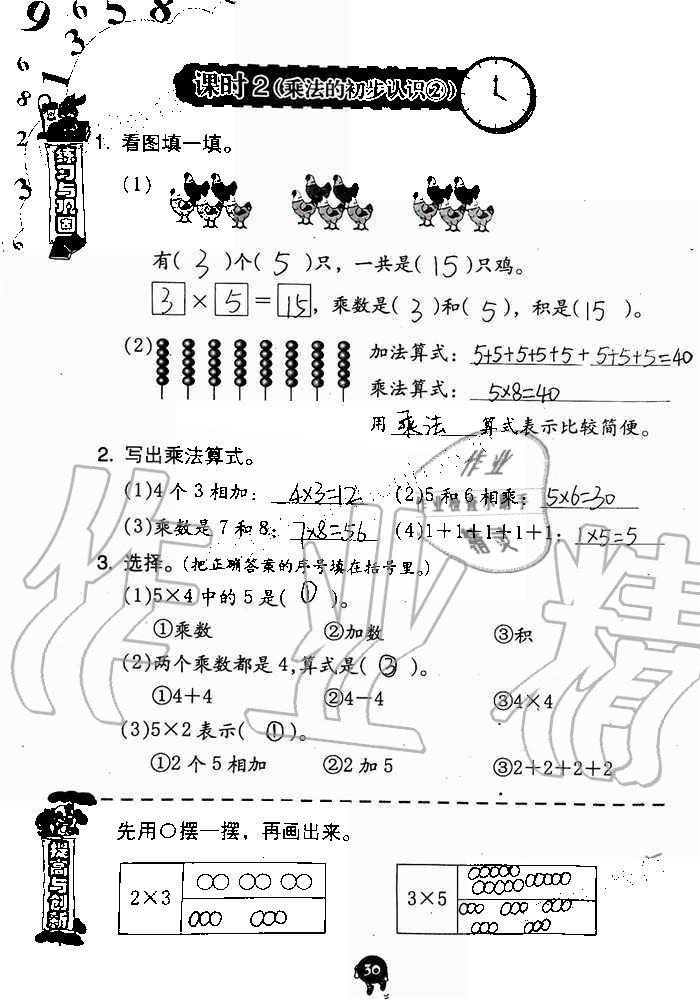 9 3 6 5 8
6
8
2
3
6
1
课时 2 (乘法的初步认识②)
练习与巩固
1. 看图填一填。
(1)
有( 3 )个( 5 )只，一共是( 15 )只鸡。
3 × 5 = 15，乘数是( 3 )和( 5 )，积是( 15 )。
(2) 加法算式：5+5+5+5+5+5+5+5=40
乘法算式：5×8=40
用 乘法 算式表示比较简便。
2. 写出乘法算式。
(1)4 个 3 相加：4×3=12 (2)5 和 6 相乘：5×6=30
(3)乘数是 7 和 8：7×8=56 (4)1+1+1+1+1：1×5=5
3. 选择。(把正确答案的序号填在括号里。)
(1)5×4 中的 5 是( ① )。
①乘数 ②加数 ③积
(2)两个乘数都是 4,算式是( ③ )。
①4+4 ②4-4 ③4×4
(3)5×2 表示( ① )。
①2 个 5 相加 ②2 加 5 ③2+2+2+2
提高与创新
先用○摆一摆，再画出来。
2×3 3×5
30
作业精
作业
作业检查小助手
精灵